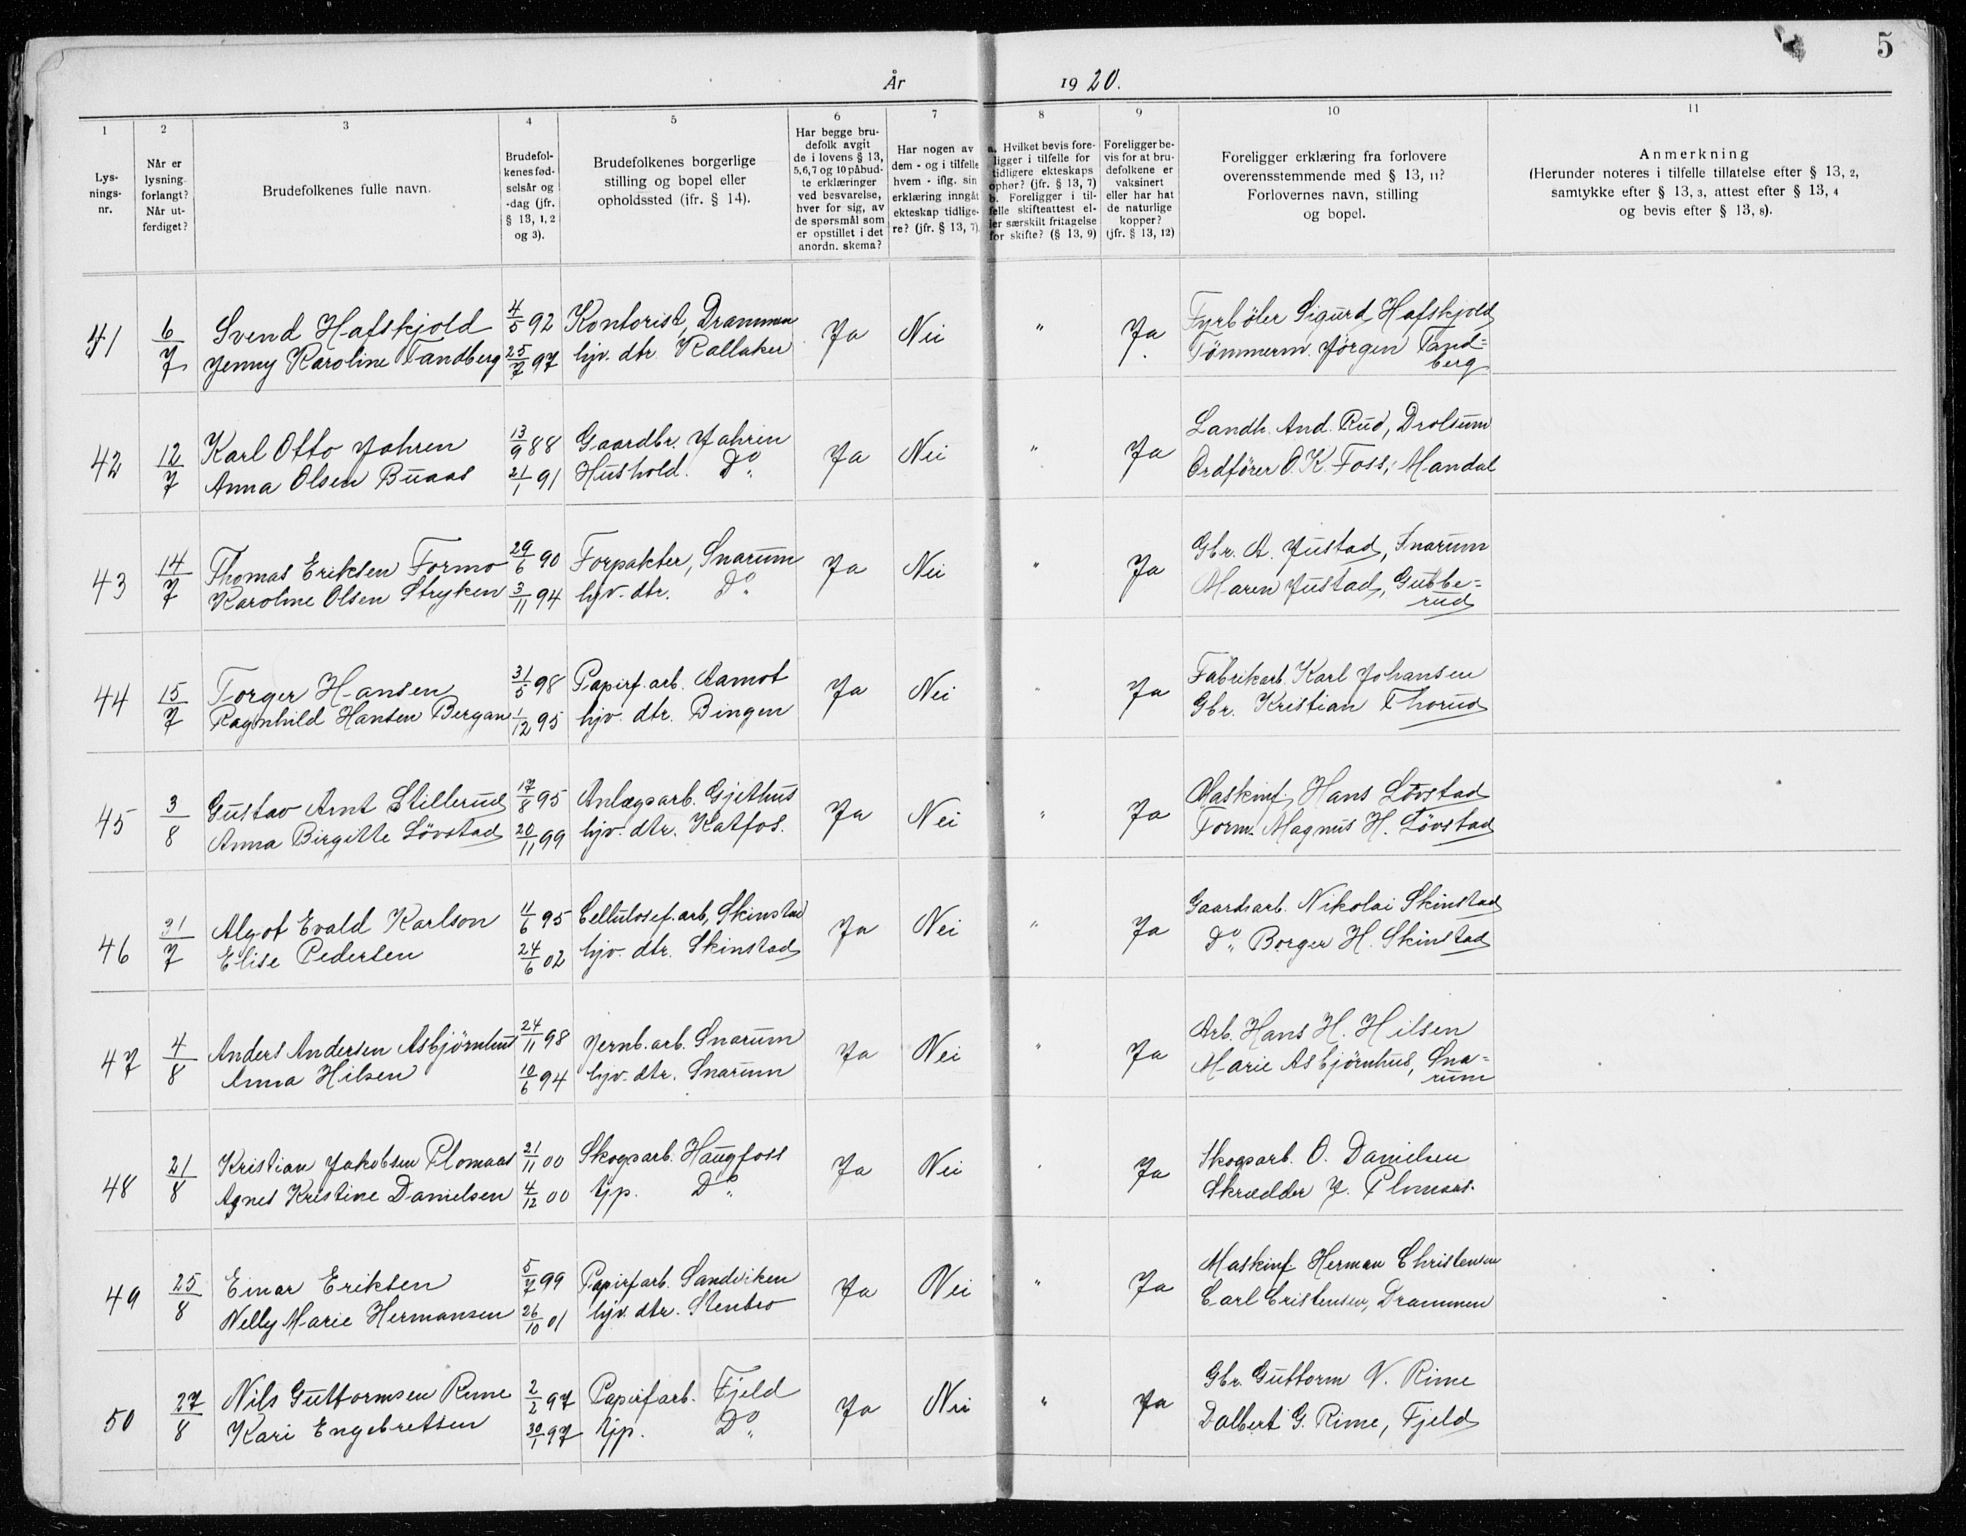 5
År 1920.
1 2 3 4 5 6 7 8 9 10 11
Lysningsnr.
Når er lysning forlangt? Når utferdiget?
Brudefolkenes fulle navn.
Brudefolkenes fødselsår og -dag (jfr. § 13, 1, 2 og 3).
Brudefolkenes borgerlige stilling og bopel eller opholdssted (jfr. § 14).
Har begge brudefolk avgit de i lovens § 13, 5,6,7 og 10 påbudte erklæringer ved besvarelse, hver for sig, av de spørsmål som er opstillet i det anordn. skema?
Har nogen av dem - og i tilfelle hvem - iflg. sin erklæring inngåt ekteskap tidligere? (jfr. § 13, 7)
a. Hvilket bevis foreligger i tilfelle for tidligere ekteskaps ophør? (jfr. § 13, 7) b. Foreligger i tilfelle skifteattest eller særskilt fritagelse for skifte? (§ 13, 9)
Foreligger bevis for at brudefolkene er vaksinert eller har hat de naturlige kopper? (jfr. § 13, 12)
Foreligger erklæring fra forlovere overensstemmende med § 13, 11? Forlovernes navn, stilling og bopel.
Anmerkning (Herunder noteres i tilfelle tillatelse efter § 13, 2, samtykke efter § 13, 3, attest efter § 13, 4 og bevis efter § 13, 8).
41 6/7 Svend Hafskjold 4/5 92 Kontorist, Drammen Ja Nei " Ja Fyrböter Sigurd Hafskjold
Jenny Karoline Tandberg 25/7 97 hjv. dtr. Kallaker Tömmerm. Jörgen Tandberg
42 12/7 Karl Otto Jahren 13/9 88 Gaardbr. Jahren Ja Nei " Ja Landh. And. Rud, Drolsum
Anna Olsen Buaas 21/1 91 Hushold. Do Ordförer O. K. Foss, Mandal
43 14/7 Thomas Eriksen Formo 29/6 90 Forpakter, Snarum Ja Nei " Ja Gbr. A. Justad, Snarum
Karoline Olsen Stryken 3/11 94 hjv. dtr. Do Maren Justad, Gubberud
44 15/7 Torger Hansen 31/5 98 Papirf. arb. Aamot Ja Nei " Ja Fabrikarb. Karl Johansen
Ragnhild Hansen Bergan 1/12 95 hjv. dtr. Bingen Gbr. Kristian Thorud
45 3/8 Gustav Arnt Stillerud 17/8 95 Anlægsarb. Gjethus Ja Nei " Ja Maskinf. Hans Lövstad
Anna Birgitte Lövstad 20/11 99 hjv. dtr. Katfos. Form. Magnus H. Lövstad
46 31/7 Algot Evald Karlson 4/6 95 Cellulosef. arb, Skinstad Ja Nei " Ja Gaardsarb. Nikolai Skinstad
Elise Pedersen 24/6 02 hjv. dtr. Skinstad Do Borger H. Skinstad
47 4/8 Anders Andersen Asbjørnhus 24/11 98 Jernb. arb. Snarum Ja Nei " Ja Arb. Hans H. Hilsen
Anna Hilsen 10/6 94 hjv. dtr. Snarum Marie Asbjørnhus, Snarum
48 21/8 Kristian Jakobsen Plomaas 21/11 00 Skogsarb. Haugfoss Ja Nei " Ja Skogsarb. O. Danielsen
Agnes Kristine Danielsen 4/12 00 tjp. Do Skrædder J. Plomaas.
49 25/8 Einar Eriksen 5/7 99 Papirfarb. Sandviken Ja Nei " Ja Maskinf. Herman Christensen
Nelly Marie Hermansen 26/10 01 hjv. dtr. Stenbro Carl Cristensen, Drammen
50 27/8 Nils Guttormsen Rime 2/2 97 Papirfarb. Fjeld Ja Nei " Ja Gbr. Guttorm N. Rime
Kari Engebretsen 30/1 97 tjp. Do Dalbert G. Rime, Fjeld